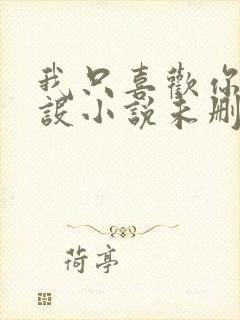 我只喜歡你
設小說未刪
荷亭